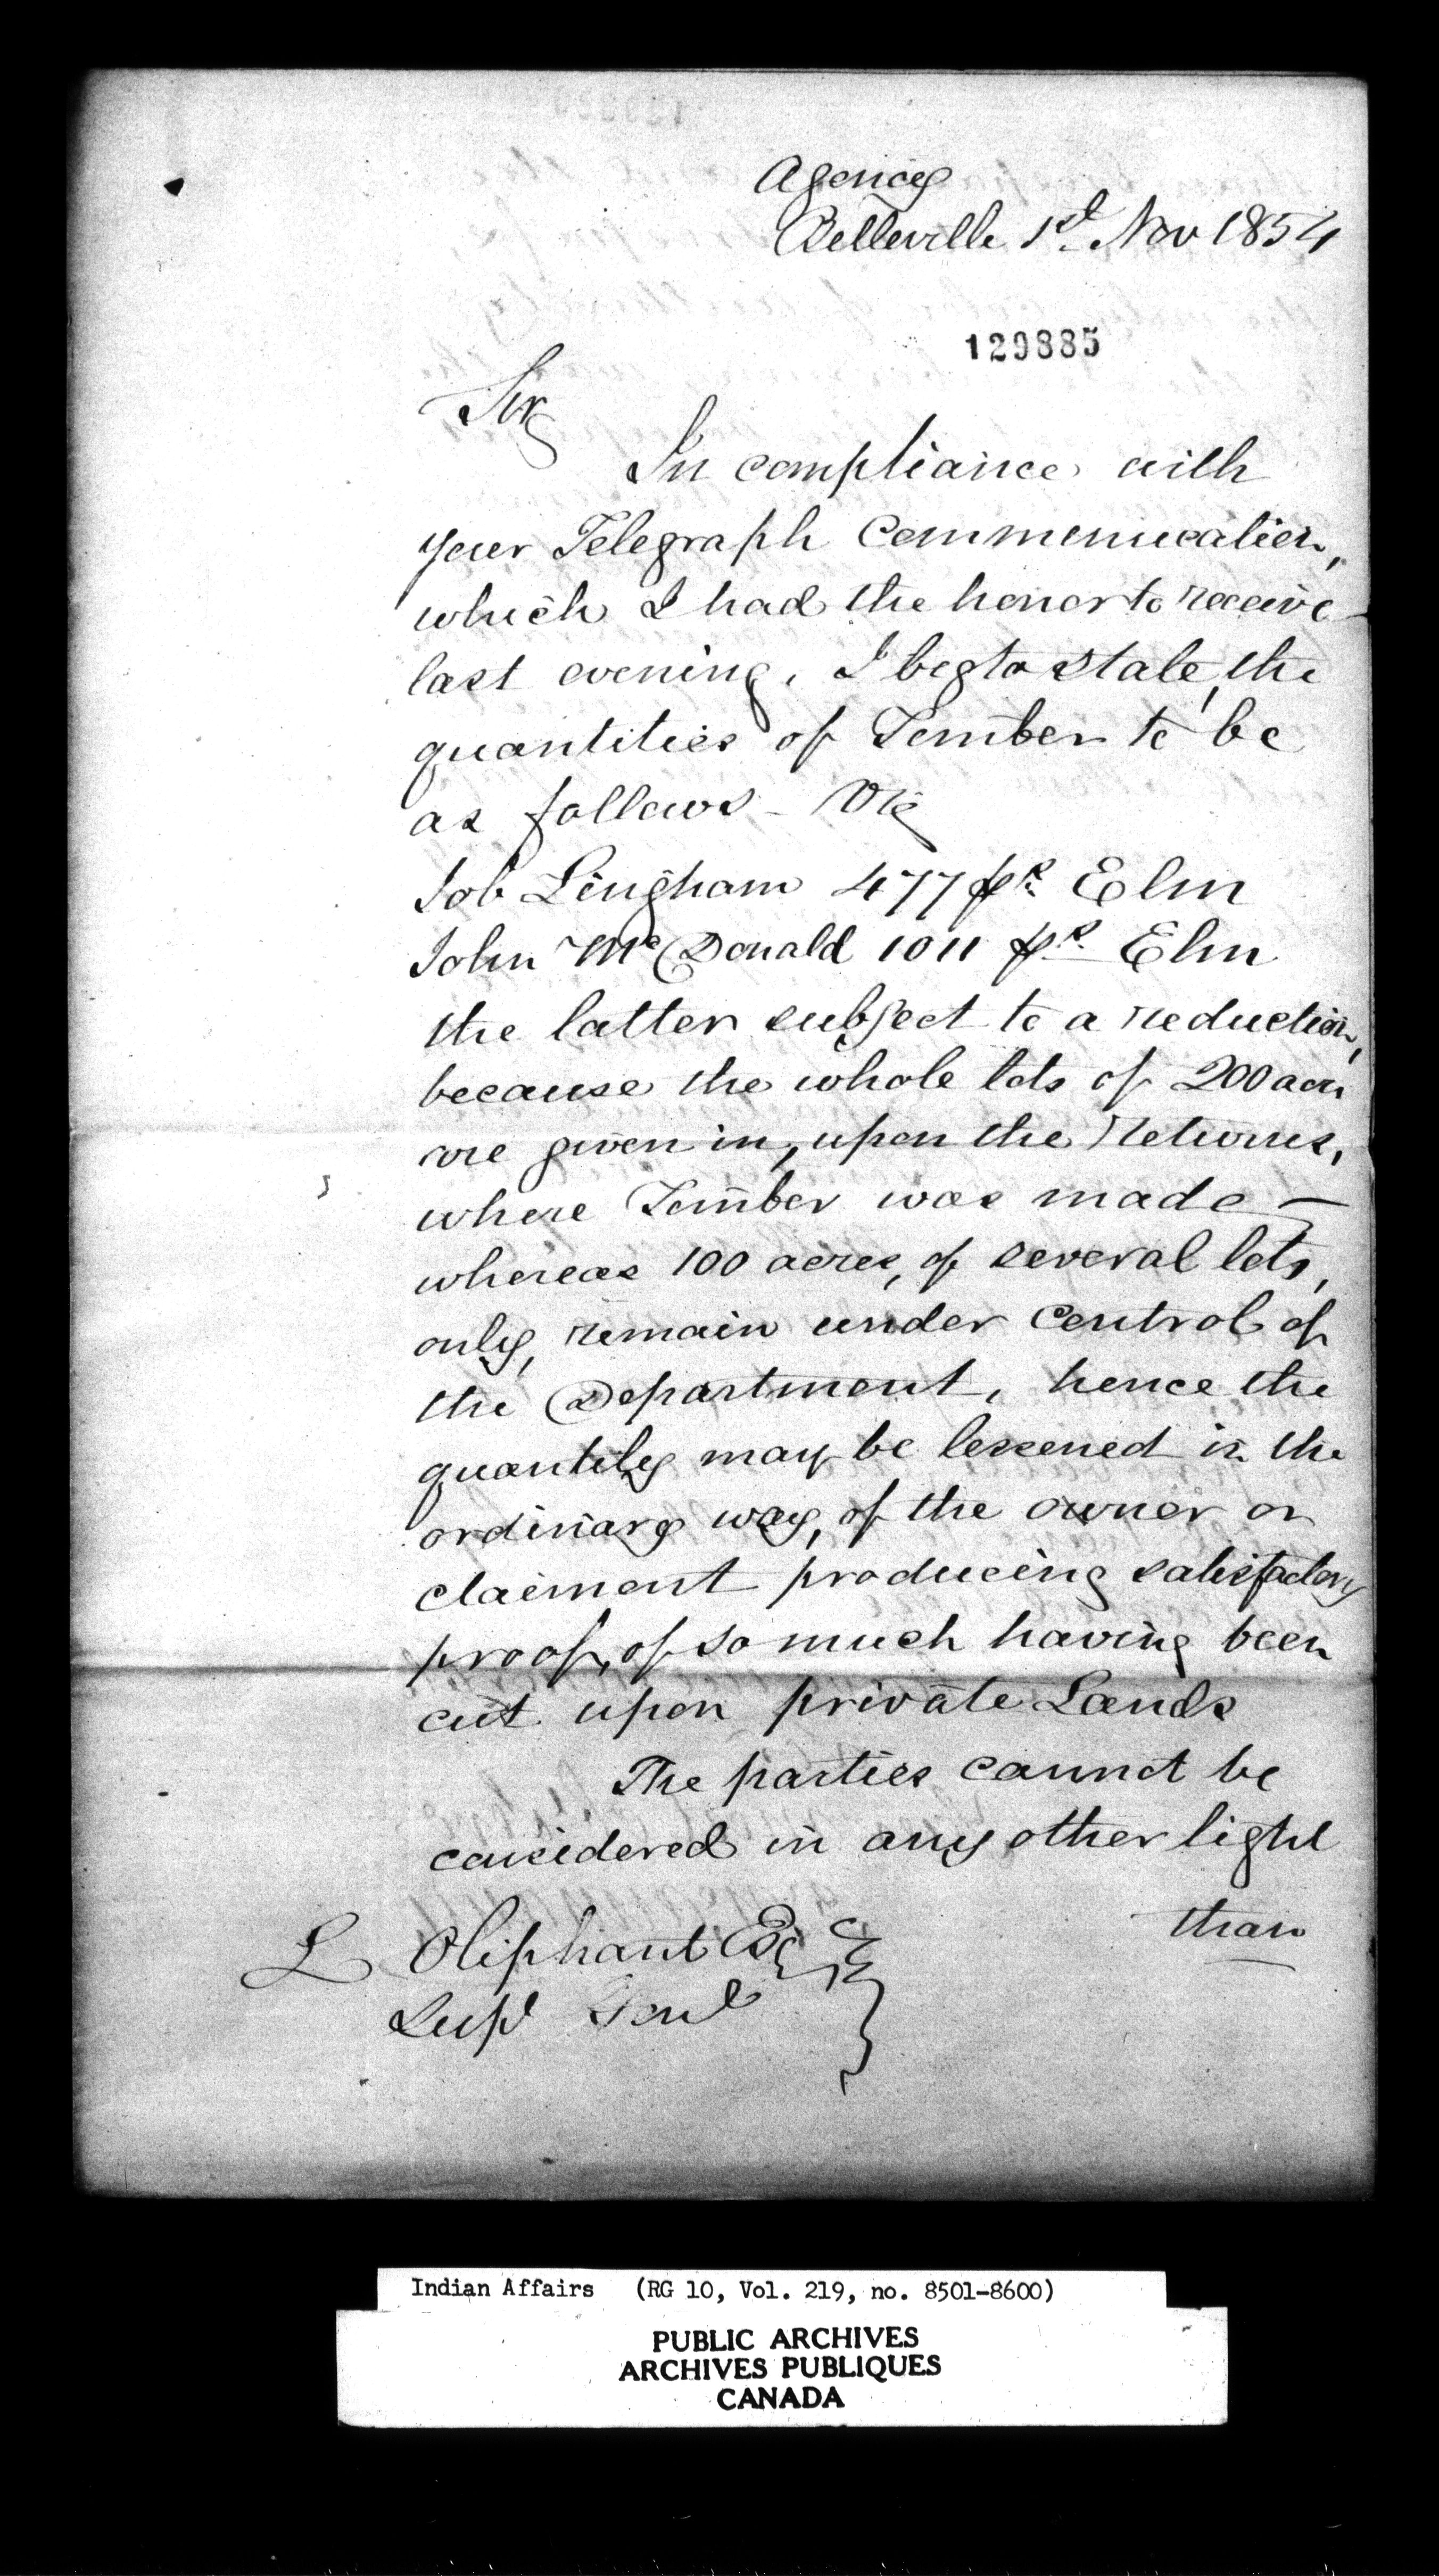 Agency
Belleville 1st Nov 1854
129885
Sir
In compliance with
your Telegraph Communication,
which I had the honor to receive
last evening, I beg to state, the
quantities of Timber to be
as follows - Viz
Job Lingham 477 ps Elm
John McDonald 1011 ps Elm
the latter subject to a reduction,
because the whole lots of 200 acres
are given in, upon the Returns,
where Timber was made —
whereas 100 acres, of several lots,
only, remain under Control of
the Department, hence the
quantity may be lessened in the
ordinary way, of the owner or
claimant producing satisfactory
proof, of so much having been
cut upon private Lands
The parties cannot be
considered in any other light
than
L Oliphant Esq
Supt Genl
Indian Affairs (RG 10, Vol. 219, no. 8501-8600)
PUBLIC ARCHIVES
ARCHIVES PUBLIQUES
CANADA